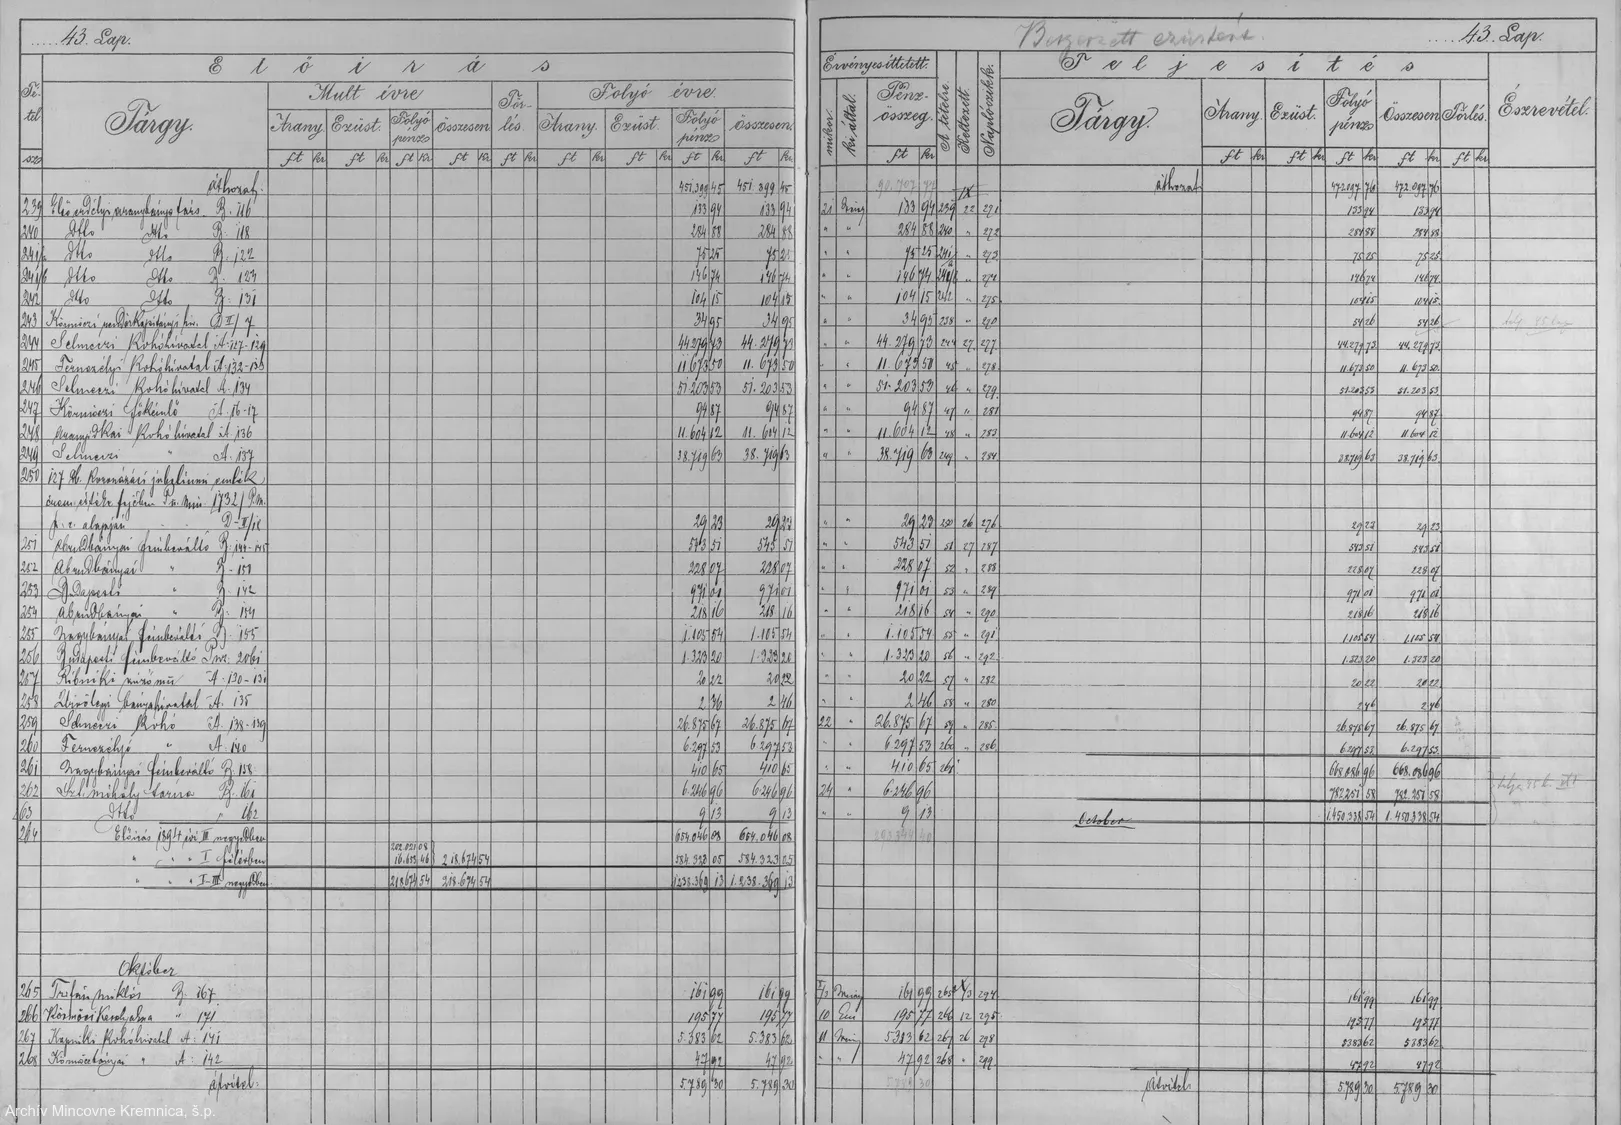 43. Lap.
Előirás
Tétel szám
Tárgy.
Mult évre
Törlés.
Folyó évre.
Arany. Ezüst. Folyó pénz Összesen
Arany. Ezüst. Folyó pénz Összesen.
ft kr ft kr ft kr ft kr ft kr ft kr ft kr ft kr ft kr
áthozat. 451.399 45 451.399 45
239 Első erdélyi aranybánya társ. B. 116 133 94 133 94
240 Dtto Dtto B. 118 284 88 284 88
241/a Dtto Dtto B. 122 75 25 75 25
241/b Dtto Dtto B. 123 146 74 146 74
242 Dtto Dtto B. 131 104 15 104 15
243 D II/7 34 95 34 95
244 Selmeczi Kohóhivatal A. 127-129 44.279 73 44.279 73
245 Fernezélyi Kohóhivatal A. 132-133 11.673 50 11.673 50
246 Selmeczi Kohóhivatal A. 134 51.203 53 51.203 53
247 Körmöczi főkémlő A. 16-17 94 87 94 87
248 Kohóhivatal A. 136 11.604 12 11.604 12
249 Selmeczi " A. 137 38.719 63 38.719 63
250 127 db. Koronázási jubileumi emlék
1732/P.m.
alapján D-II/18 29 23 29 23
251 Abrudbányai fémbeváltó B. 144-145 543 51 543 51
252 Abrudbányai " B. 150 228 07 228 07
253 Budapesti " B. 142 971 01 971 01
254 Abrudbányai " B. 154 218 16 218 16
255 Nagybányai fémbeváltó B. 155 1.105 54 1.105 54
256 Budapesti fémbeváltó 1.323 20 1.323 20
257 A. 130-131 20 22 20 22
258 bányahivatal A. 135 2 46
259 Selmeczi Kohó A. 138-139 26.875 67 26.875 67
260 Fernezélyi " A. 140 6.297 53 6.297 53
261 Nagybányai fémbeváltó B. 158 410 65 410 65
262 Szt. mihály tárna B. 161 6.246 96 6.246 96
263 Dtto " 162 9 13 9 13
264 Előirás 1894 évi III negyedben 202.021 08 654.046 08 654.046 08
" " " I félévben 16.653 46 218.674 54 584.323 05 584.323 05
" " " I-III negyedben 218.674 54 218.674 54 1.238.369 13 1.238.369 13
Október
265 Trifán Miklós B. 167 161 99 161 99
266 Körmöczi Károlyakna " 171 195 77 195 77
267 Kapniki Kohóhivatal A. 141 5.383 62 5.383 62
268 Körmöczbányai " A. 142 47 92 47 92
átvitel. 5.789 30 5.789 30
Archív Mincovne Kremnica, š.p.
Beszerzett ezüstért.
43. Lap.
Érvényesittetett.
Teljesités
mikor ki által. Pénzösszeg. A tételre Keltezett. Naplószükk.
Tárgy.
Arany. Ezüst. Folyó pénz Összesen Törlés.
Észrevétel.
ft kr ft kr ft kr ft kr ft kr ft kr
IX áthozat 472.097 76 472.097 76
21 133 94 239 22 271 133 94 133 94
" " 284 88 240 " 272 284 88 284 88
" " 75 25 241/a " 273 75 25 75 25
" " 146 74 241/b " 274 146 74 146 74
" " 104 15 242 " 275 104 15 104 15
" " 34 95 238 " 270 54 26 54 26
" " 44.279 73 244 27 277 44.279 73 44.279 73
" " 11.673 50 45 " 278 11.673 50 11.673 50
" " 51.203 53 46 " 279 51.203 53 51.203 53
" " 94 87 47 " 281 94 87 94 87
" " 11.604 12 48 " 283 11.604 12 11.604 12
" " 38.719 63 249 " 284 38.719 63 38.719 63
" " 29 23 250 26 276 29 23 29 23
" " 543 51 51 27 287 543 51 543 51
" " 228 07 52 " 288 228 07 228 07
" " 971 01 53 " 289 971 01 971 01
" " 218 16 54 " 290 218 16 218 16
" " 1.105 54 55 " 291 1.105 54 1.105 54
" " 1.323 20 56 " 292 1.323 20 1.323 20
" " 20 22 57 " 282 20 22 20 22
" " 2 46 58 " 280 2 46 2 46
22 " 26.875 67 59 " 285 26.875 67 26.875 67
" " 6.297 53 260 " 286 6.297 53 6.297 53
" " 410 65 261 668.086 96 668.086 96
24 " 6.246 96 782.251 58 782.251 58
" " 9 13 October 1.450.338 54 1.450.338 54
161 99 265 294 161 99 161 99
10 195 77 266 12 295 195 77 195 77
11 5.383 62 267 26 298 5.383 62 5.383 62
" " 47 92 268 " 299 47 92 47 92
átvitel 5.789 30 5.789 30